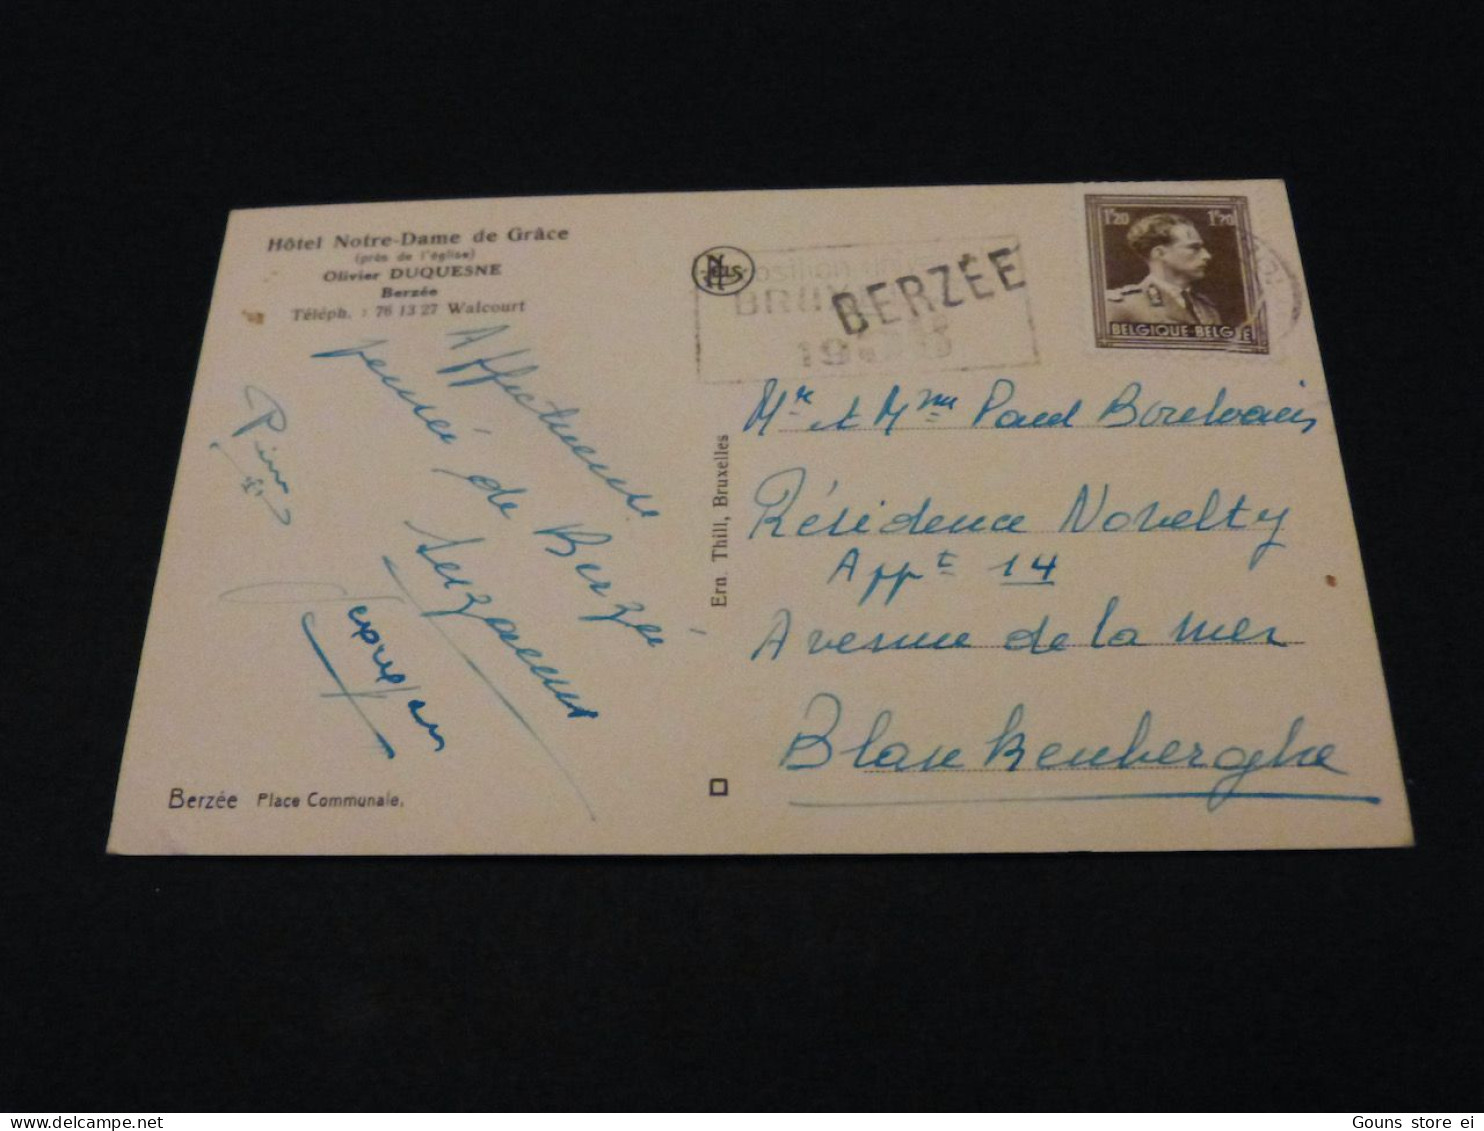 Hôtel Notre-Dame de Grâce
(près de l'église)
Olivier DUQUESNE
Berzée
Téléph. : 76 13 27 Walcourt
Affectueuse
pensée de Berzée
Suzanne
NELS
BERZÉE
BRUX
19
1F20 1F20
BELGIQUE-BELGIE
Ern. Thill, Bruxelles
Mr et Mme Paul
Résidence Novelty
Appt 14
Avenue de la mer
Blankenberghe
Berzée Place Communale.
Gouns store ei